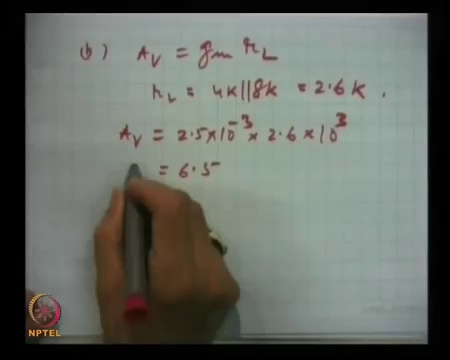 (b) Av = gm rL
rL = 4K||8K = 2.6K.
Av = 2.5×10⁻³ × 2.6 × 10³
= 6.5
NPTEL